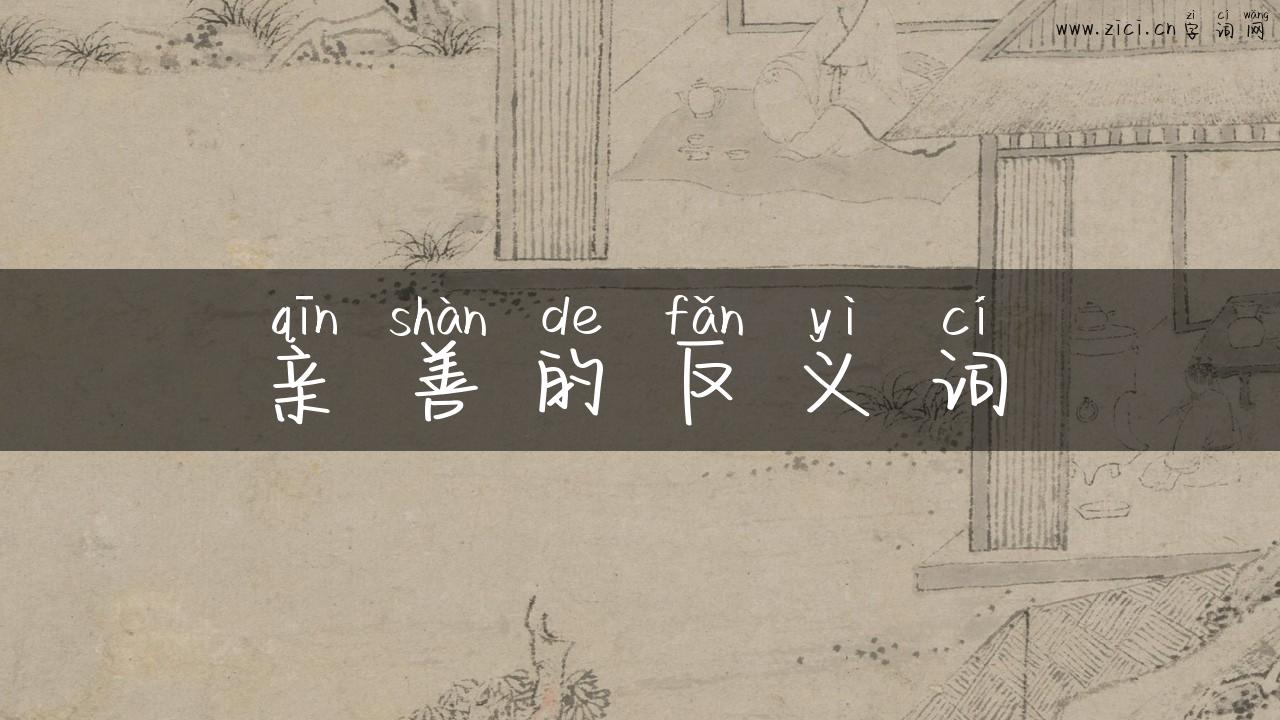 zì cí wǎng
www.zici.cn 字词网
qīn shàn de fǎn yì cí
亲善的反义词